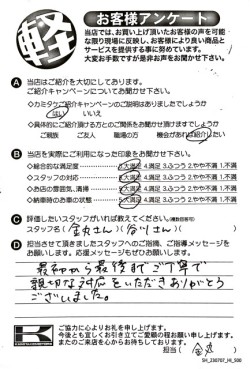 軽
お客様アンケート
当店では、お買い上げ頂いたお客様の声を可能
な限り現場に反映し、お客様により良い商品と
サービスを提供する事に努めています。
大変お手数ですが是非お声をお聞かせ下さい。
A 当店はご紹介を大切にしております。
ご紹介キャンペーンについてお聞かせ下さい。
◇カミタケご紹介キャンペーンのご説明はありましたでしょうか
はい いいえ
◇具体的にご紹介頂ける方とのご関係をお聞かせ頂けますでしょうか
ご親族 ご友人 職場の方 機会があれば紹介したい
B 当店を実際にご利用になった印象をお聞かせ下さい。
◇総合的な満足度 5.大満足 4.満足 3.ふつう 2.やや不満 1.不満
◇スタッフの対応 5.大満足 4.満足 3.ふつう 2.やや不満 1.不満
◇お店の雰囲気、清掃 5.大満足 4.満足 3.ふつう 2.やや不満 1.不満
◇納車時のお車の状態 5.大満足 4.満足 3.ふつう 2.やや不満 1.不満
C 評価したいスタッフがいれば教えてください。(複数回答可)
スタッフ名( 金丸さん )( 谷川さん )
D 担当させて頂きましたスタッフへのご指摘、ご指導メッセージを
お願いします。応援メッセージもぜひお願いします。
最初から最後までご丁寧で
親切な対応をいただきありがとう
ございました。
K
ご協力に心よりお礼を申し上げます。
今後とも宜しくお引き立てご愛顧の程お願い申し上げます。
また、お客様のご健康を心からお祈り申し上げます。
担当( 金丸 )
SH_230707_HI_500